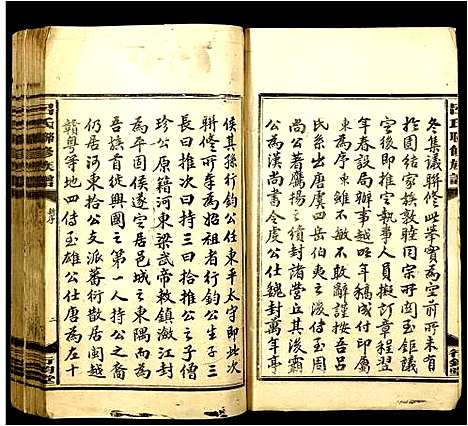 冬集議聯修此舉實為空前所未有
於團結家族敦睦同宗所関至鉅議
定後即推定執事人員商訂章程翌
年春設局辦事越年稿成付印囑
為之序重不敏不敢辭謹按吾呂
氏系出唐虞四岳伯夷之後及周
尚公著鷹揚之續封諸營丘其後霸
公為漢尚書令虔公仕魏封萬年亭
侯其孫行鈞公任東平太守即此次
聯修所奉為始祖者行鈞公生子三
長曰推次曰持三曰拾推公之子僧
珍公原籍河東梁武帝教鎮瀲江封
為平固侯遂定居邑城之東隅而為
吾族首徙興國之第一人持公之裔
仍居河東拾公支派蕃衍散居閩越
贛粵等地四傳至雄公仕唐為左十
呂氏聯修族譜
新序
二
行鈞堂
呂氏聯修族譜
行鈞堂